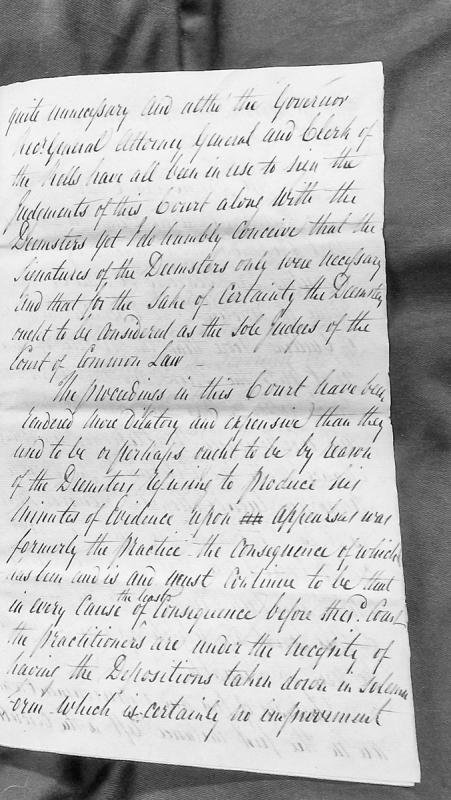 quite unnecessary and altho' the Governor
General Attorney General and Clerk of
the Rolls have all been in use to sign the
Judgments of this Court along with the
Deemsters yet I do humbly conceive that the
signatures of the Deemsters only were necessary
and that for the sake of certainty the Deemsters
ought to be considered as the sole Judges of the
Court of Common Law –
The proceedings in this Court have been
rendered more dilatory and expensive than they
used to be or perhaps ought to be by reason
of the Deemsters refusing to produce his
Minutes of Evidence upon appeals as was
formerly the practice – the consequence of which
has been and is and must continue to be that
in every Cause of the least Consequence before the sd. Court
the practitioners are under the necessity of
having the Depositions taken down in solemn
form which is certainly no improvement